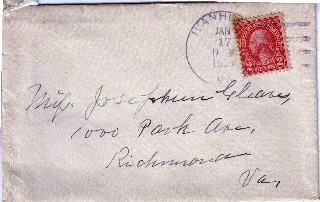 IVANHOE
JAN
17
192
VA.
Miss Josephine Cleaves,
1000 Park Ave,
Richmond
Va,